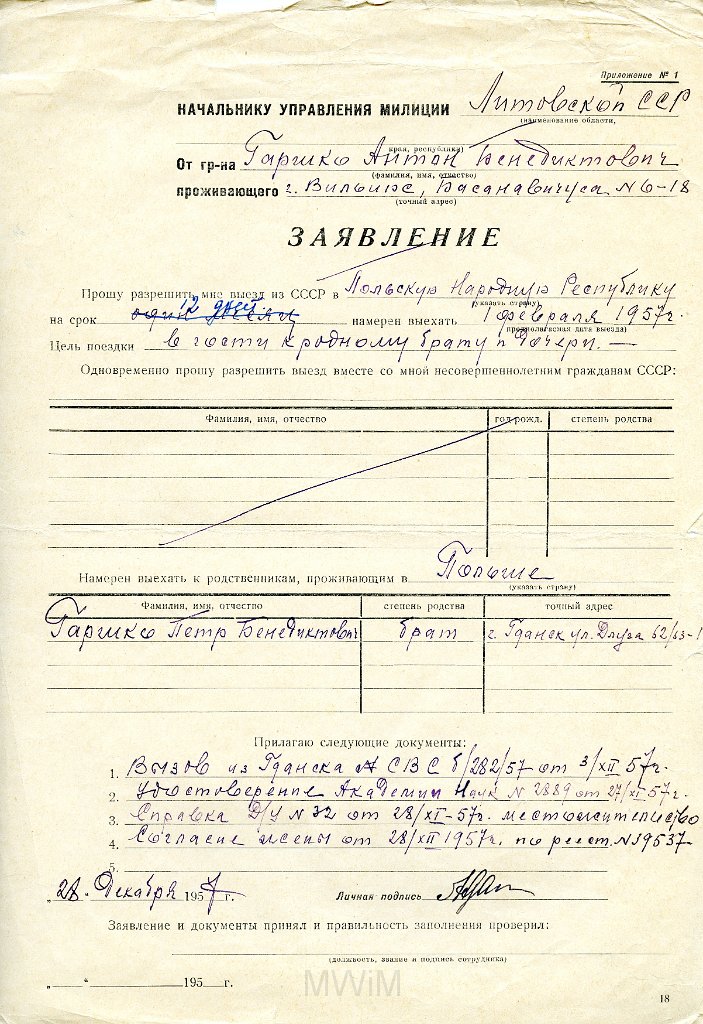 Приложение № 1
НАЧАЛЬНИКУ УПРАВЛЕНИЯ МИЛИЦИИ Литовской ССР
(наименование области,
края, республики)
От гр-на Гаршко Антон Бенедиктович
(фамилия, имя, отчество)
проживающего г. Вильнюс, Басанавичуса № 6-18
(точный адрес)
ЗАЯВЛЕНИЕ
Прошу разрешить мне выезд из СССР в Польскую Народную Республику
(указать страну)
12 дней
на срок один месяц намерен выехать 1 февраля 1957г.
(предполагаемая дата выезда)
Цель поездки в гости к родному брату и дочери. —
Одновременно прошу разрешить выезд вместе со мной несовершеннолетним гражданам СССР:
Фамилия, имя, отчество год рожд. степень родства
Намерен выехать к родственникам, проживающим в Польше
(указать страну)
Фамилия, имя, отчество степень родства точный адрес
Гаршко Петр Бенедиктович брат г. Гданск ул. Длуга 62/63-1
Прилагаю следующие документы:
1. Вызов из Гданска СВС б/282/57 от 3/XII 57г.
2. Удостоверение Академии Наук N 2889 от 27/XII-57г.
3. Справка Д/У N 32 от 28/XI-57г. местожительство
4. Согласие жены от 28/XII 1957г. по реест. N 19537-
5.
„28" Декабря 1957 г. Личная подпись
Заявление и документы принял и правильность заполнения проверил:
(должность, звание и подпись сотрудника)
„ " 195 г.
MWiM
18